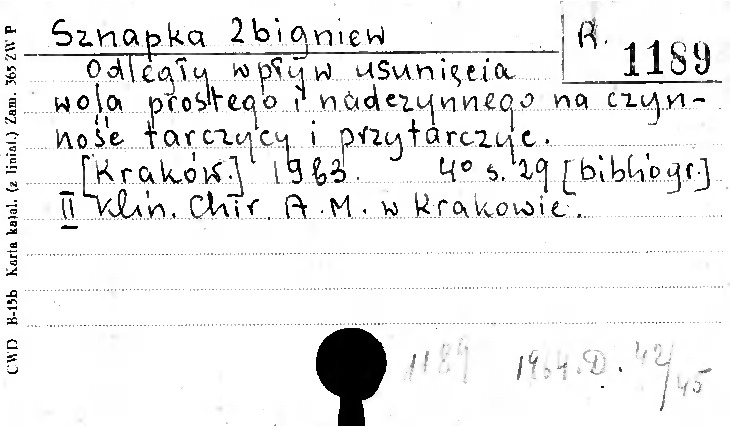 Sznapka Zbigniew
R. 1189
Odległy wpływ usunięcia
wola prostego i nadczynnego na czyn-
ność tarczycy i przytarczyc.
[Kraków.] 1963. 4° s. 29 [bibliogr.]
II Klin. Chir. A.M. w Krakowie.
1189 1964.D.42/45
CWD B-15b Karta katal. (z liniat.) Zam. 365 ZW P